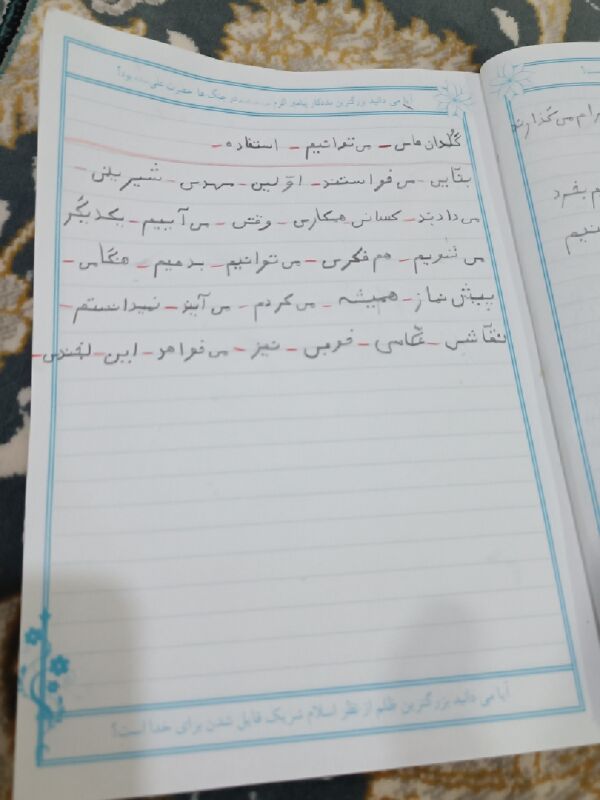 آیا می دانید بزرگترین مددکار پیامبر اکرم در جنگ ها حضرت علی بود؟
گلدان هاس - می توانیم - استفاده -
بنّایی - می خواستند - اوّلین - مهدی - شیرینی -
می دادند - کسانی - همکاری - وقتی - می آییم - یکدیگر
می شویم - هم فکری - می توانیم - بدهیم - هنگامی -
پیش نماز - همیشه - می کردم - می آیئز - نمیدانستم -
نقّاشی - عکّاسی - خوبی - نیز - می خواهد - این - لبخندی -
آیا می دانید بزرگترین ظلم از نظر اسلام شریک قایل شدن برای خدا است؟
رام می گذارند
م بخرد
نیم